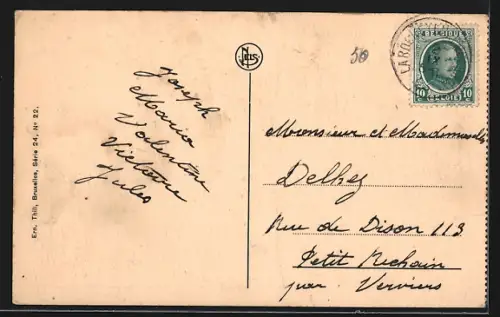 Joseph
Maria
Valentine
Victoire
Jules
Ern. Thill, Bruxelles, Série 24, Nº 22.
NELS
50
BELGIQUE
10 10
BELGIË
Monsieur et Mademoiselle
Delhez
Rue de Dison 113
Petit Rechain
par Verviers